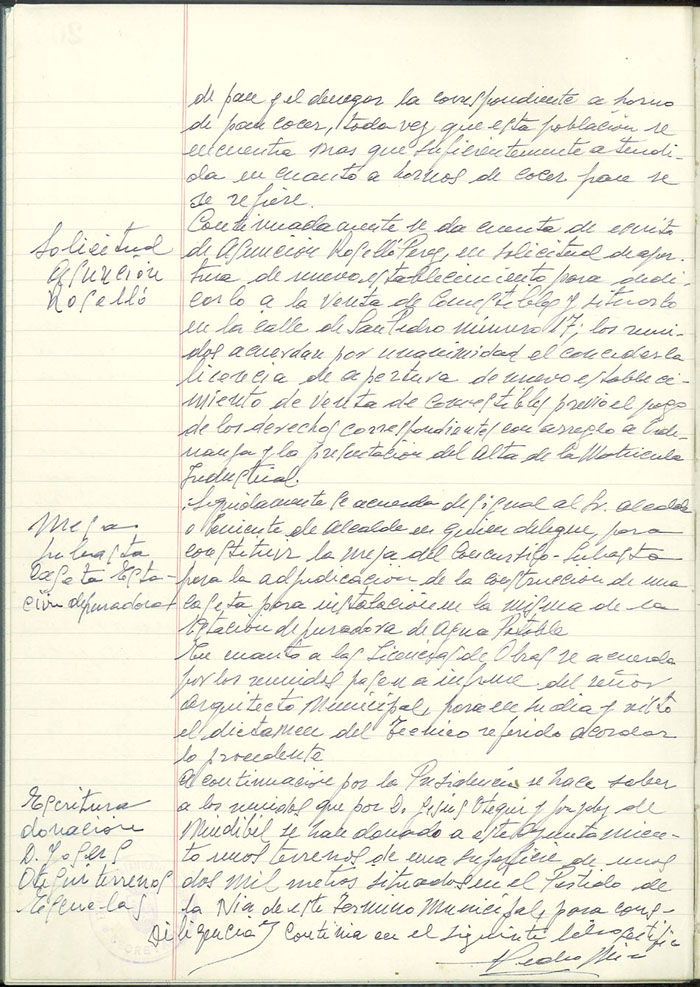 de pan y el denegar la correspondiente a horno
de pan cocer, toda vez que esta población se
encuentra mas que suficientemente atendi-
da en cuanto a hornos de cocer pan se
se refiere.
Solicitud
Asunción
Roselló
Continuadamente se da cuenta de escrito
de Asunción Roselló Perez, en solicitud de aper-
tura de nuevo establecimiento para dedi-
carlo a la venta de Comestibles y situarlo
en la calle de San Pedro número 17; los reuni-
dos acuerdan por unanimidad el conceder la
licencia de apertura de nuevo estableci-
miento de venta de comestibles previo el pago
de los derechos correspondientes con arreglo a Orde-
nanza y la presentación del Alta de la Matricula
Industrial.
Mesa
Subasta
Caseta Esta-
ción depuradora
Seguidamente se acuerda designar al Sr. Alcalde
o Teniente de Alcalde en quien delegue, para
constituir la mesa del Concurso-Subasta
para la adjudicación de la construcción de una
caseta para instalación en la misma de la
Estación depuradora de Agua Potable
En cuanto a las Licencias de Obras se acuerda
por los reunidos pasen a informe del señor
Arquitecto Municipal, para en su dia y visto
el dictamen del Tecnico referido acordar
lo procedente
Escritura
donación
D. Otegui terrenos
Escuelas
A continuación por la Presidencia se hace saber
a los reunidos que por D. Otegui y de
se han donado a este Ayuntamien-
to unos terrenos de una superficie de unos
dos mil metros situados en el Partido de
la Nia de este Termino Municipal, para cons-
Diligencia Continua en el siguiente libro certifico
Pedro